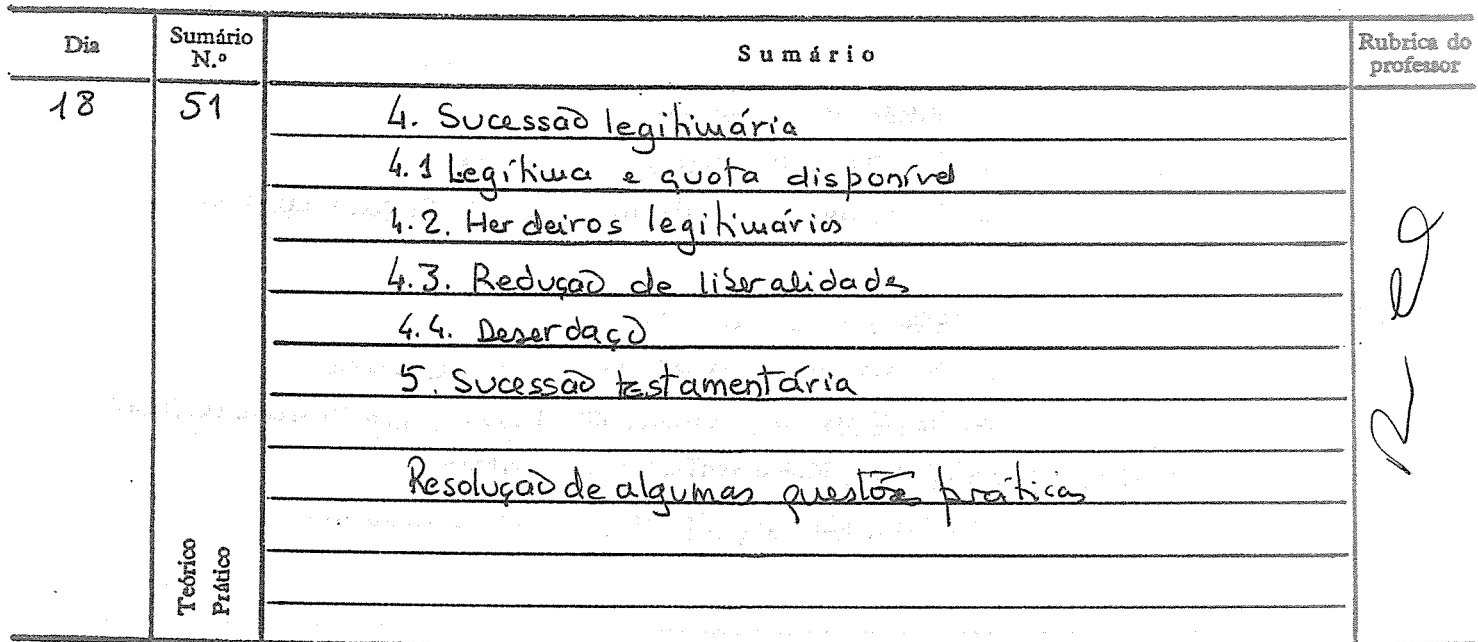 Dia Sumário N.º Sumário Rubrica do professor
18 51 4. Sucessão legitimária
4.1 Legítima e quota disponível
4.2. Herdeiros legitimários
4.3. Redução de liberalidades
4.4. Deserdação
5. Sucessão testamentária
Resolução de algumas questões práticas
Teórico
Prático